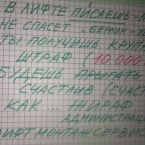 В ЛИФТЕ ПИСАЕШЬ -
НЕ СПАСЁТ
ТЫ ПОЛУЧИШЬ КРУПН
ШТРАФ (10.000
БУДЕШЬ ПРЫГАТЬ
СЧАСТЛИВ (СЧАСТ
КАК... ЖИРАФ
АДМИНИСТРАЦИ
ЛИФТМОНТАЖСЕРВИС